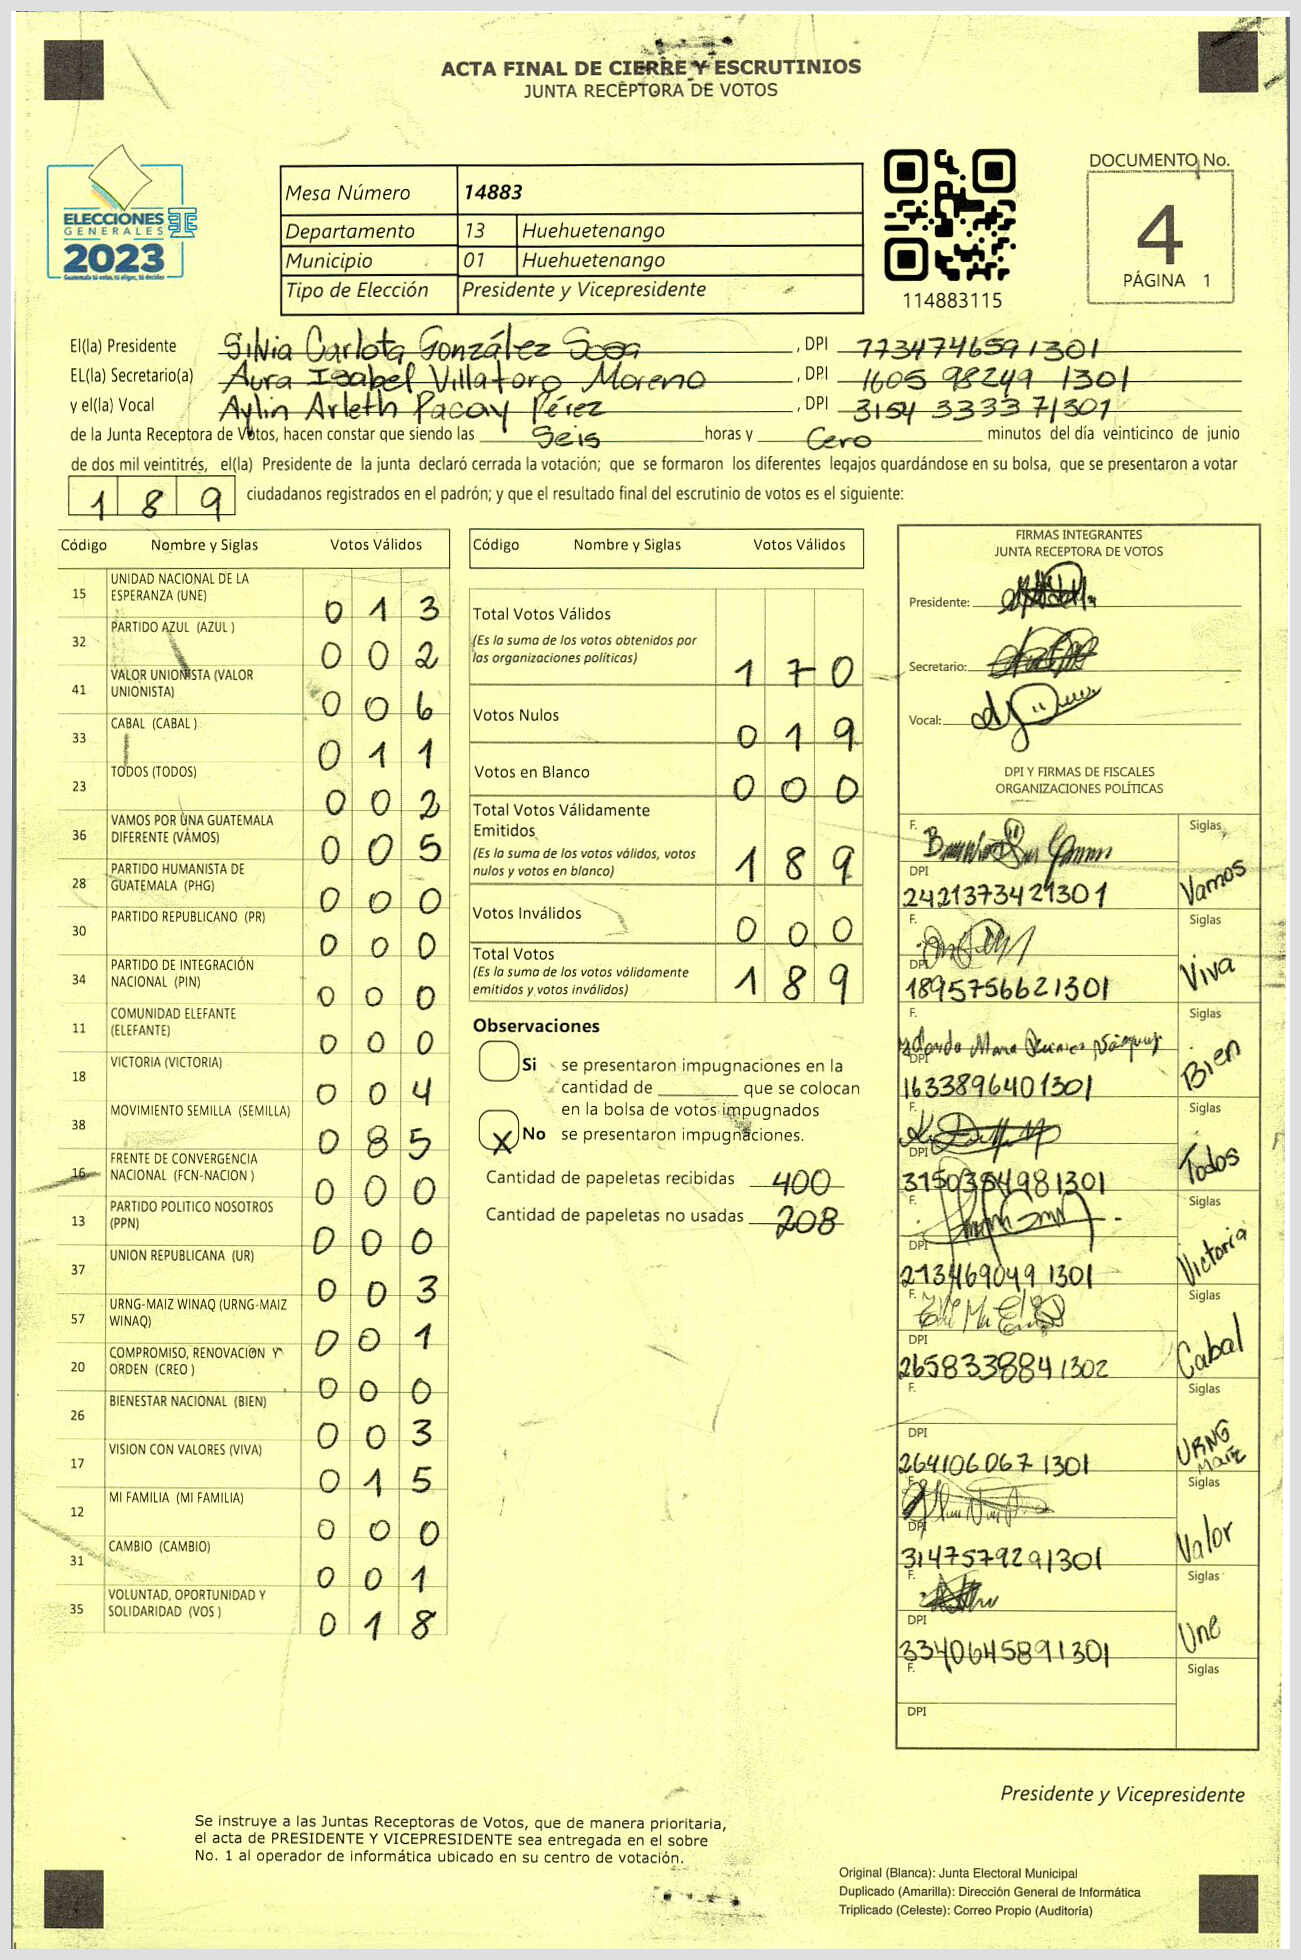 ACTA FINAL DE CIERRE Y ESCRUTINIOS
JUNTA RECEPTORA DE VOTOS
ELECCIONES
GENERALES
2023
Guatemala tú votas, tú eliges, tú decides
Mesa Número 14883
Departamento 13 Huehuetenango
Municipio 01 Huehuetenango
Tipo de Elección Presidente y Vicepresidente
114883115
DOCUMENTO No.
4
PÁGINA 1
El(la) Presidente Silvia Carlota González Sosa , DPI 7734746591301
EL(la) Secretario(a) Aura Isabel Villatoro Moreno , DPI 1605 98249 1301
y el(la) Vocal Aylin Arleth Pacay Pérez , DPI 3154 333371301
de la Junta Receptora de Votos, hacen constar que siendo las Seis horas y Cero minutos del día veinticinco de junio
de dos mil veintitrés, el(la) Presidente de la junta declaró cerrada la votación; que se formaron los diferentes legajos guardándose en su bolsa, que se presentaron a votar
189 ciudadanos registrados en el padrón; y que el resultado final del escrutinio de votos es el siguiente:
Código Nombre y Siglas Votos Válidos
15 UNIDAD NACIONAL DE LA
ESPERANZA (UNE) 013
32 PARTIDO AZUL (AZUL ) 002
41 VALOR UNIONISTA (VALOR
UNIONISTA) 006
33 CABAL (CABAL ) 011
23 TODOS (TODOS) 002
36 VAMOS POR UNA GUATEMALA
DIFERENTE (VAMOS) 005
28 PARTIDO HUMANISTA DE
GUATEMALA (PHG) 000
30 PARTIDO REPUBLICANO (PR) 000
34 PARTIDO DE INTEGRACIÓN
NACIONAL (PIN) 000
11 COMUNIDAD ELEFANTE
(ELEFANTE) 000
18 VICTORIA (VICTORIA) 004
38 MOVIMIENTO SEMILLA (SEMILLA) 085
16 FRENTE DE CONVERGENCIA
NACIONAL (FCN-NACION ) 000
13 PARTIDO POLITICO NOSOTROS
(PPN) 000
37 UNION REPUBLICANA (UR) 003
57 URNG-MAIZ WINAQ (URNG-MAIZ
WINAQ) 001
20 COMPROMISO, RENOVACIÓN Y
ORDEN (CREO ) 000
26 BIENESTAR NACIONAL (BIEN) 003
17 VISION CON VALORES (VIVA) 015
12 MI FAMILIA (MI FAMILIA) 000
31 CAMBIO (CAMBIO) 001
35 VOLUNTAD, OPORTUNIDAD Y
SOLIDARIDAD (VOS ) 018
Código Nombre y Siglas Votos Válidos
Total Votos Válidos
(Es la suma de los votos obtenidos por
las organizaciones políticas) 170
Votos Nulos 019
Votos en Blanco 000
Total Votos Válidamente
Emitidos
(Es la suma de los votos válidos, votos
nulos y votos en blanco) 189
Votos Inválidos 000
Total Votos
(Es la suma de los votos válidamente
emitidos y votos inválidos) 189
Observaciones
Si se presentaron impugnaciones en la
cantidad de ________ que se colocan
en la bolsa de votos impugnados
X No se presentaron impugnaciones.
Cantidad de papeletas recibidas 400
Cantidad de papeletas no usadas 208
FIRMAS INTEGRANTES
JUNTA RECEPTORA DE VOTOS
Presidente:
Secretario:
Vocal:
DPI Y FIRMAS DE FISCALES
ORGANIZACIONES POLÍTICAS
F. Siglas
DPI Vamos
2421373421301
F. Siglas
DPI Viva
1895756621301
F. Siglas
DPI Bien
1633896401301
F. Siglas
DPI Todos
3150354981301
F. Siglas
DPI Victoria
2734690491301
F. Siglas
DPI Cabal
2658338841302
F. Siglas
DPI URNG Maiz
2641060671301
F. Siglas
DPI Valor
3147579291301
F. Siglas
DPI Une
3340645891301
F. Siglas
DPI
Presidente y Vicepresidente
Se instruye a las Juntas Receptoras de Votos, que de manera prioritaria,
el acta de PRESIDENTE Y VICEPRESIDENTE sea entregada en el sobre
No. 1 al operador de informática ubicado en su centro de votación.
Original (Blanca): Junta Electoral Municipal
Duplicado (Amarilla): Dirección General de Informática
Triplicado (Celeste): Correo Propio (Auditoría)